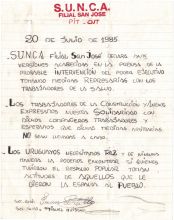 S.U.N.C.A.
FILIAL SAN JOSE
PIT - CNT
20 DE JULIO DE 1985
.SUNCA FILIAL SAN JOSÉ DECLARA ANTE
VERSIONES APARECIDAS EN LA PRENSA DE LA
PROBABLE INTERVENCIÓN DEL PODER EJECUTIVO
TOMANDO MEDIDAS REPRESIVAS CON LOS
TRABAJADORES DE LA SALUD.
. LOS TRABAJADORES DE LA CONSTRUCCIÓN
EXPRESAMOS NUESTRA SOLIDARIDAD CON
DICHOS COMPAÑEROS TRABAJADORES Y
ESPERAMOS QUE DICHAS MEDIDAS
NO SEAN LLEVADAS A CABO.
. LOS URUGUAYOS NECESITAMOS PAZ Y DE NINGUNA
MANERA LA PODEMOS ENCONTRAR SI QUIENES
TUVIERON EL RESPALDO POPULAR TOMAN
ACTITUDES DE AQUELLOS QUE LE
DIERON LA ESPALDA AL PUEBLO.